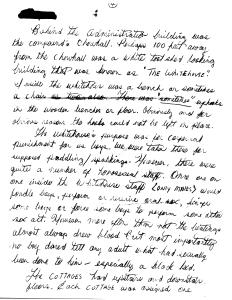 Behind the Administration building was
the compound's Chowhall. Perhaps 100 feet away
from the Chowhall was a White
building that was known as "THE WHITEHOUSE"
Inside the Whitehouse was a bench or sometimes
a chair
in the wooden benches or floor. Obviously and for
obvious reasons the could not be left in place.
The Whitehouse's purpose was for corporal
punishment for us boys. We were taken there for
supposed paddling/spankings. However there were
quite a number of homosexual staff. Once one on
one inside the Whitehouse staff (any more) would
fondle boys, perform or receive oral sex, finger
some boys or force some boys to perform some other
sex act. However more often than not the beatings
almost always drew blood. But most importantly
no boy dared tell any adult what had sexually
been done to him - especially a black kid.
The COTTAGES had upstairs and downstair
floors. Each COTTAGE was assigned one